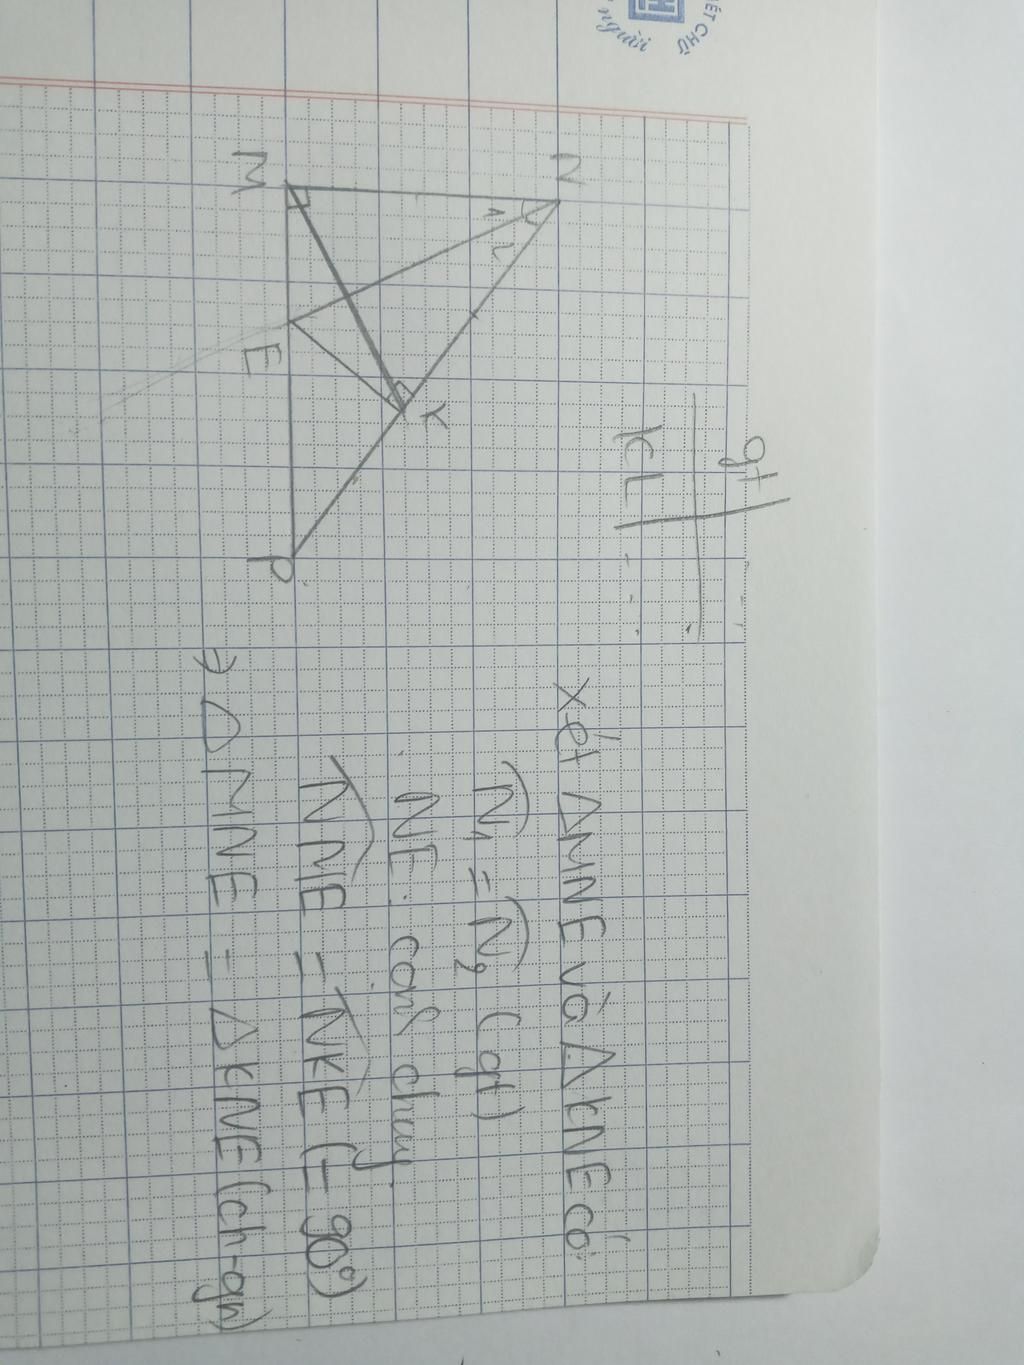 VIẾT CHỮ
người
gt
KL
N
1 2
M
E
K
P
xét ΔMNE và ΔKNE có:
N̂₁ = N̂₂ (gt)
NE: cạnh chung
NME = NKE (= 90°)
⇒ ΔMNE = ΔKNE (ch-gn)